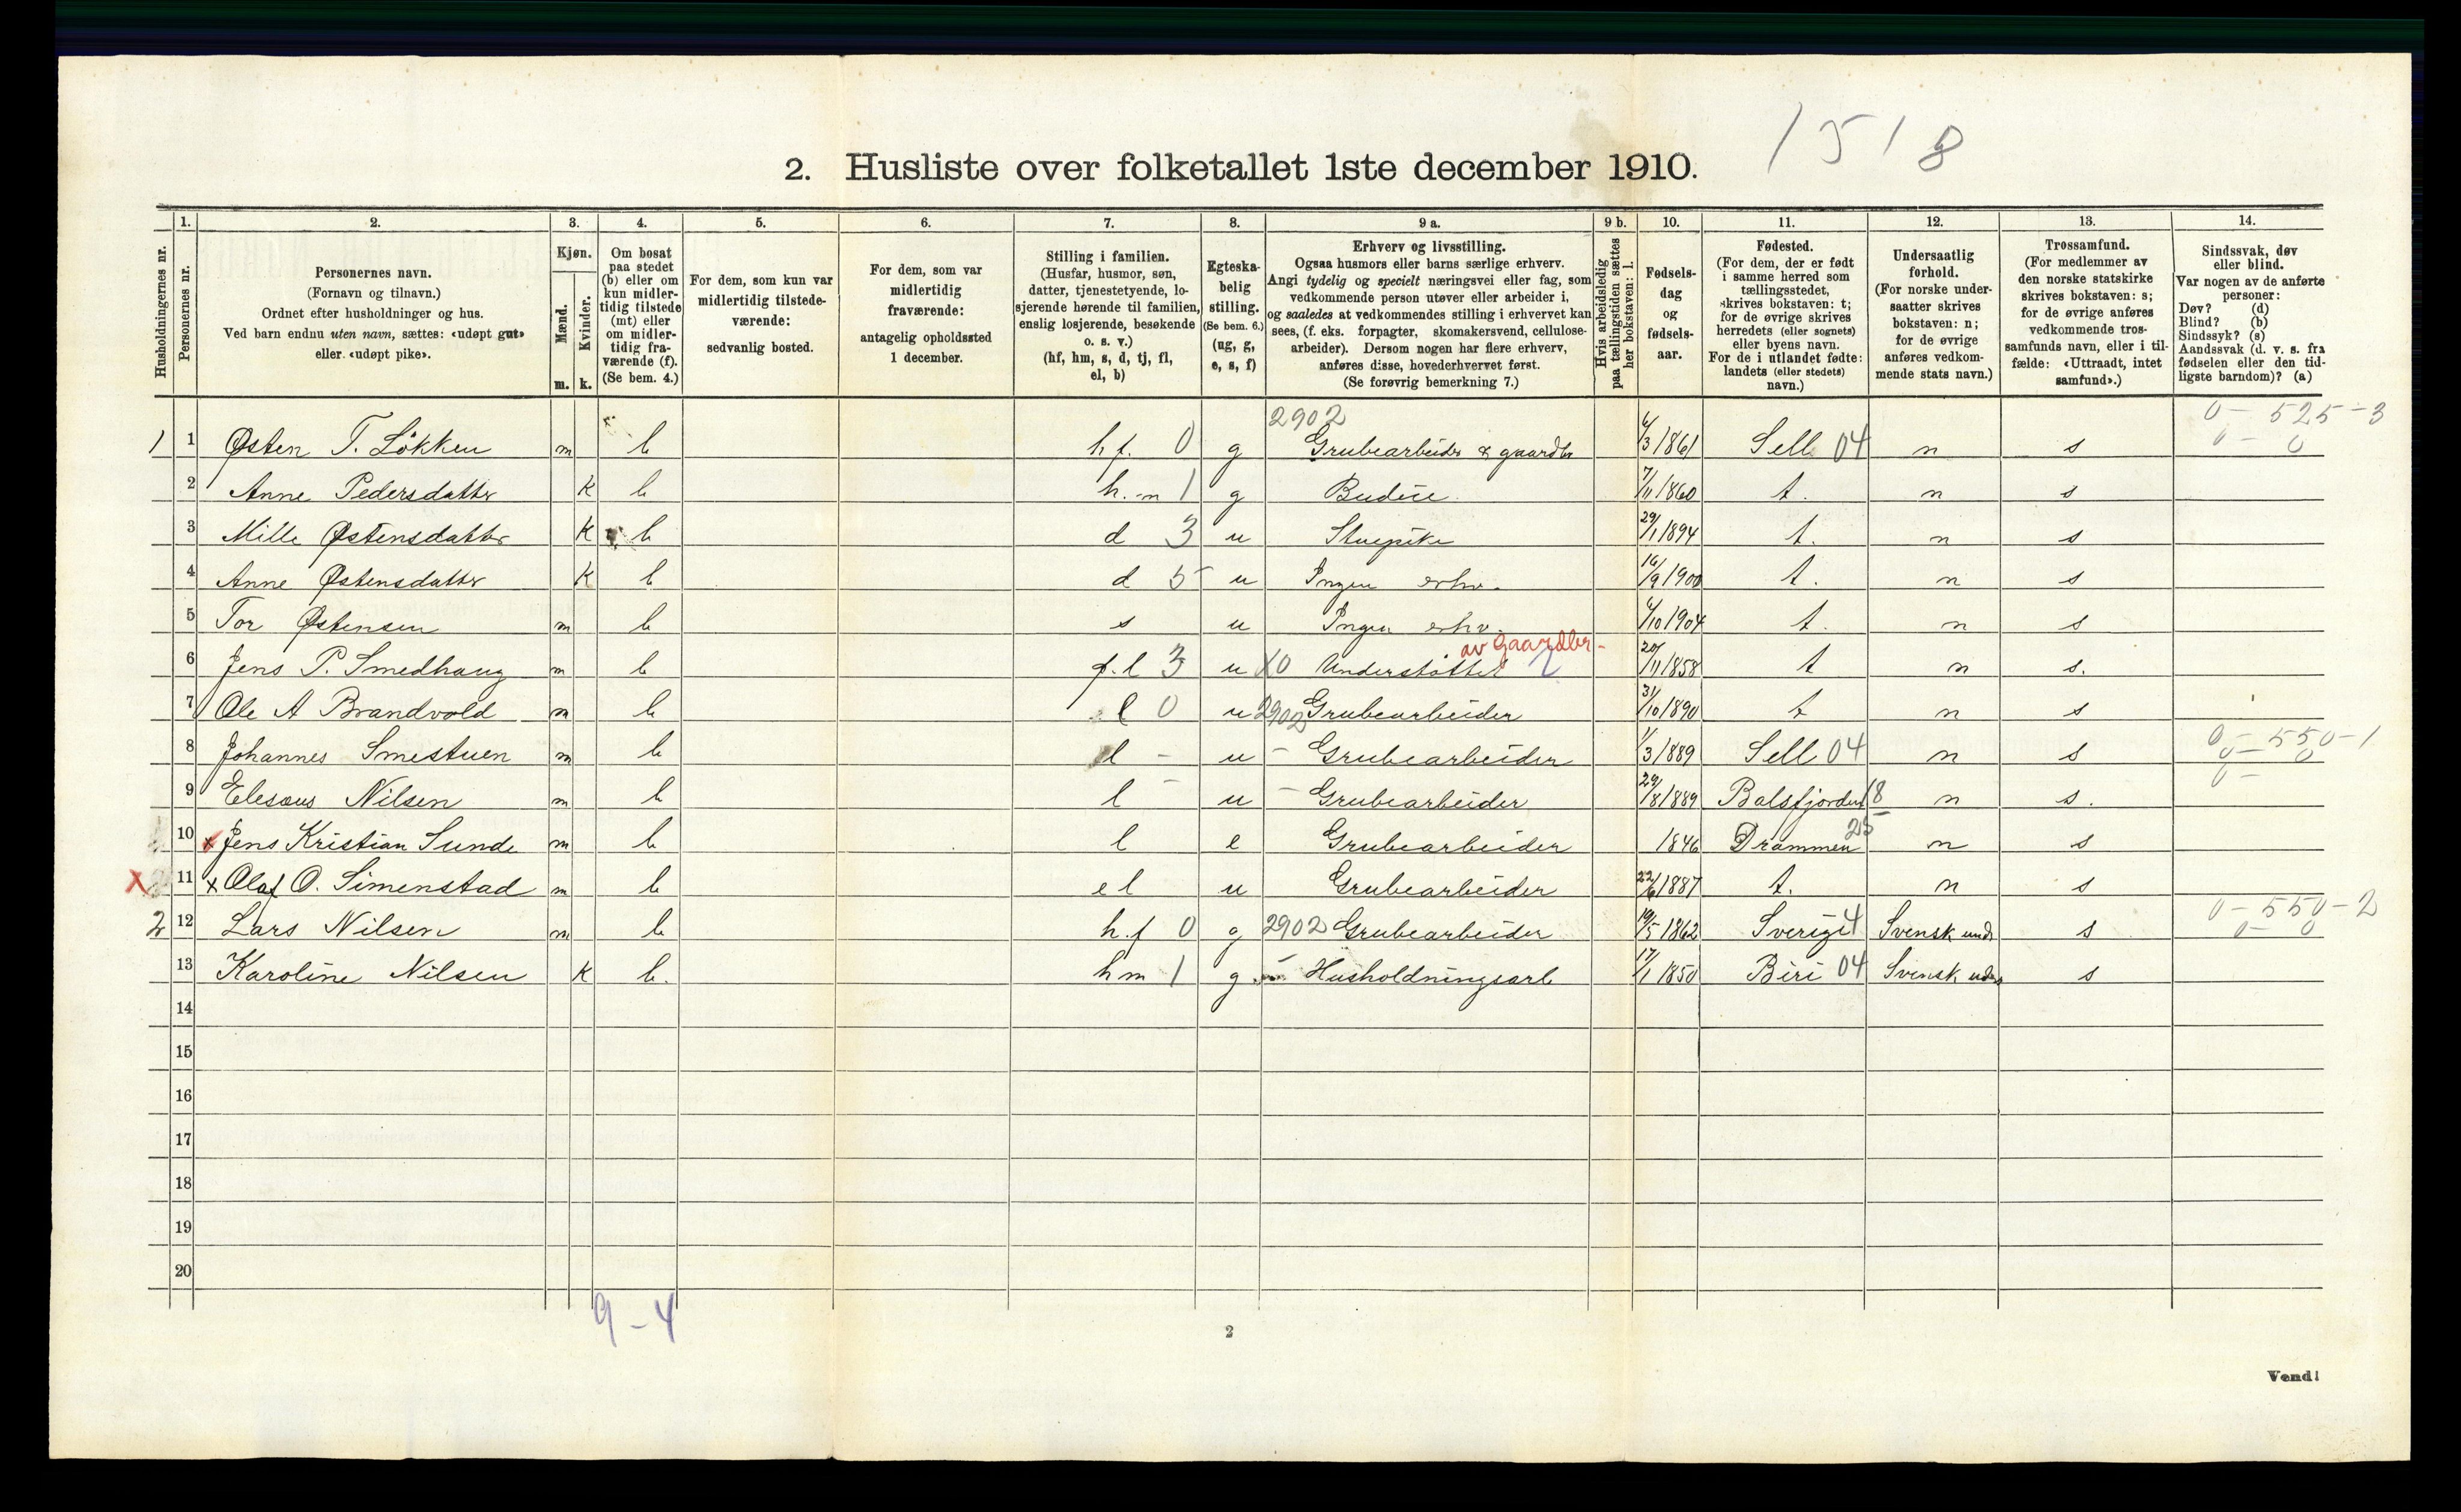 1518
2. Husliste over folketallet 1ste december 1910.
Husholdningernes nr.
1. Personernes nr.
2. Personernes navn.
(Fornavn og tilnavn.)
Ordnet efter husholdninger og hus.
Ved barn endnu uten navn, sættes: «udøpt gut»
eller «udøpt pike».
3. Kjøn.
Mænd. Kvinder.
m. k.
4. Om bosat
paa stedet
(b) eller om
kun midler-
tidig tilstede
(mt) eller
om midler-
tidig fra-
værende (f).
(Se bem. 4.)
5. For dem, som kun var
midlertidig tilstede-
værende:
sedvanlig bosted.
6. For dem, som var
midlertidig
fraværende:
antagelig opholdssted
1 december.
7. Stilling i familien.
(Husfar, husmor, søn,
datter, tjenestetyende, lo-
sjerende hørende til familien,
enslig losjerende, besøkende
o. s. v.)
(hf, hm, s, d, tj, fl,
el, b)
8. Egteska-
belig
stilling.
(Se bem. 6.)
(ug, g,
e, s, f)
9 a. Erhverv og livsstilling.
Ogsaa husmors eller barns særlige erhverv.
Angi tydelig og specielt næringsvei eller fag, som
vedkommende person utøver eller arbeider i,
og saaledes at vedkommendes stilling i erhvervet kan
sees, (f. eks. forpagter, skomakersvend, cellulose-
arbeider). Dersom nogen har flere erhverv,
anføres disse, hovederhvervet først.
(Se forøvrig bemerkning 7.)
9 b. Hvis arbeidsledig
paa tællingstiden sættes
her bokstaven: l.
10. Fødsels-
dag
og
fødsels-
aar.
11. Fødested.
(For dem, der er født
i samme herred som
tællingsstedet,
skrives bokstaven: t;
for de øvrige skrives
herredets (eller sognets)
eller byens navn.
For de i utlandet fødte:
landets (eller stedets)
navn.)
12. Undersaatlig
forhold.
(For norske under-
saatter skrives
bokstaven: n;
for de øvrige
anføres vedkom-
mende stats navn.)
13. Trossamfund.
(For medlemmer av
den norske statskirke
skrives bokstaven: s;
for de øvrige anføres
vedkommende tros-
samfunds navn, eller i til-
fælde: «Uttraadt, intet
samfund».)
14. Sindssvak, døv
eller blind.
Var nogen av de anførte
personer:
Døv? (d)
Blind? (b)
Sindssyk? (s)
Aandssvak (d. v. s. fra
fødselen eller den tid-
ligste barndom)? (a)
2902 0-525-3
1 1 Østen T. Løkken m b hf. 0 g Grubearbeider & gaardbr 6/3 1861 Sell 04 n s 0-0
2 Anne Pedersdatter K b h.m 1 g Budeie 7/11 1860 t. n s
3 Mille Østensdatter K b d 3 u Stuepike 29/1 1894 t. n s
4 Anne Østensdatter K b d 5 u Ingen erhv. 16/9 1900 t. n s
5 Tor Østensen m b s u Ingen erhv. 6/10 1904 t. n s
av gaardbr-
6 Jens P. Smedhaug m b f.l 3 u X0 Understøttet 2 20/11 1858 t n s.
7 Ole A Brandvold m b l 0 u 2902 Grubearbeider 31/10 1890 t n s
8 Johannes Smestuen m b l - u - Grubearbeider 1/3 1889 Sell 04 n s 0-550-1
9 Elesæus Nilsen m b l - u - Grubearbeider 29/8 1889 Balsfjorden 18 n s.
10 x Jens Kristian Sunde m b l e Grubearbeider 1846 Drammen 25 n s
X 11 x Olaf O. Simenstad m b el u Grubearbeider 22/6 1887 t. n s
0-550-2
2 12 Lars Nilsen m b h.f 0 g 2902 Grubearbeider 19/5 1862 Sverige 4 Svensk und. s 0-0
13 Karoline Nilsen K b. hm 1 g. Husholdningsarb 17/1 1850 Biri 04 Svensk und. s
14
15
16
17
18
19
20
9-4
2
Vend!